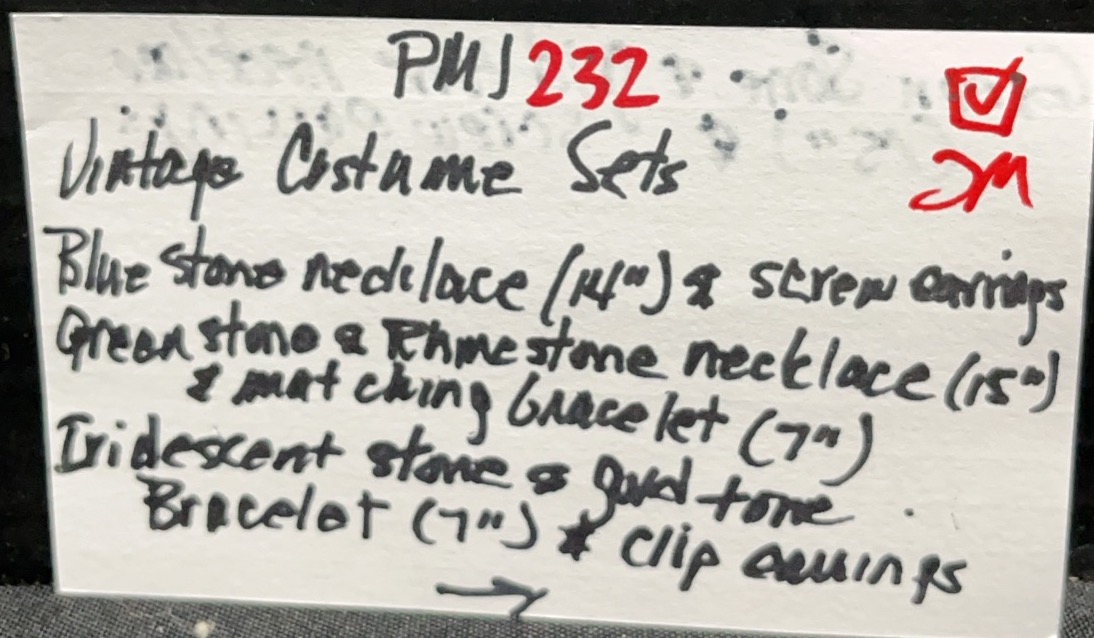 PMJ 232
JM
Vintage Costume Sets
Blue stone necklace (14") & screw earrings
Green stone & Rhinestone necklace (15")
& matching bracelet (7")
Iridescent stone & gold tone
Bracelet (7") & clip earrings
→